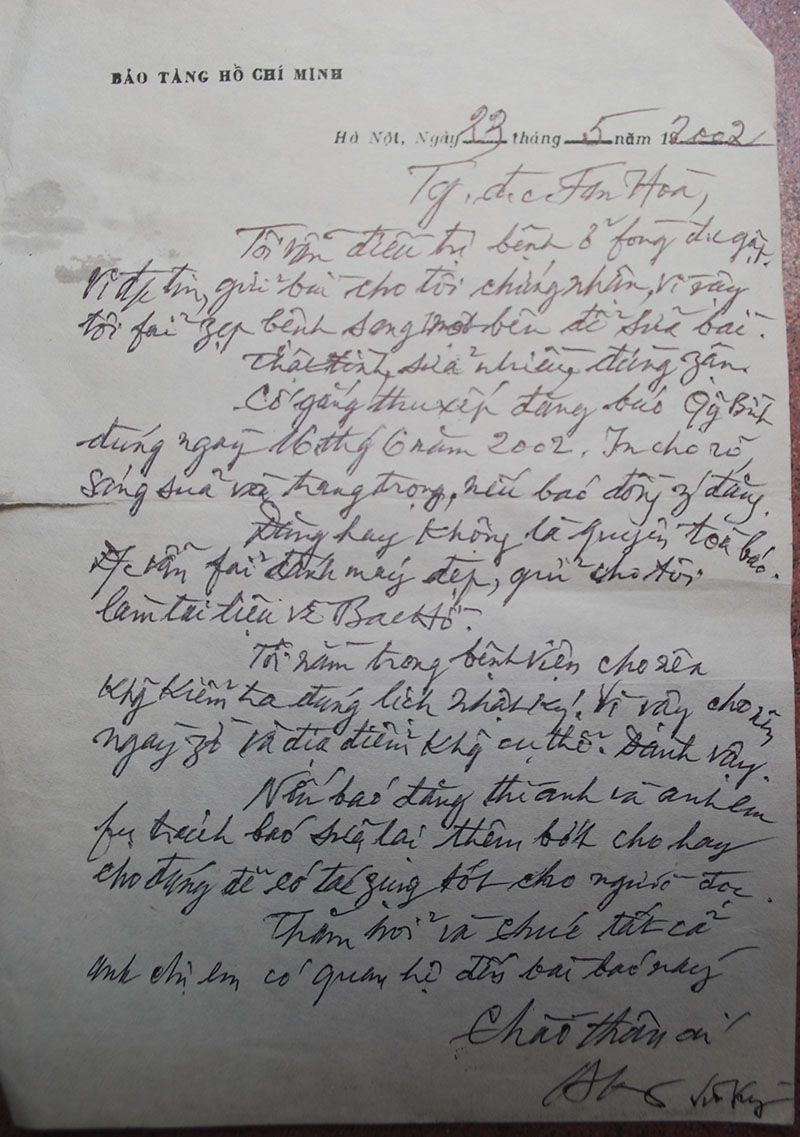 BẢO TÀNG HỒ CHÍ MINH
Hà Nội, Ngày 23 tháng 5 năm 2002
Tôi vẫn điều trị bệnh ở fong đu
tin, gửi bài cho tôi chứng nhận, vì vậy
tôi fải zẹp bệnh sang một bên để sửa bài.
Thật tình, sửa nhiều, đừng zận.
Cố gắng thu xếp đăng báo Qg Bình
đúng ngày 16 thg 6 năm 2002. In cho rõ,
sáng suả và trang trọng, nếu báo đồng í đăng.
Đăng hay không là quyền toà báo.
Đ/c vẫn fải đánh máy đẹp, gửi cho tôi
làm tài liệu về Bác Hồ.
Tôi nằm trong bệnh viện cho nên
Khg kiểm tra đúng lịch nhật ký. Vì vậy cho nên
ngày zờ và địa điểm khg cụ thể. Đành vậy.
Nếu báo đăng thì anh và anh em
fụ trách báo sửa lại thêm bớt cho hay
cho đúng để có tác zụng tốt cho người đọc.
Thăm hỏi và chúc tất cả
anh chị em có quan hệ đến bài báo này
Chào thân ái
Vũ Kỳ